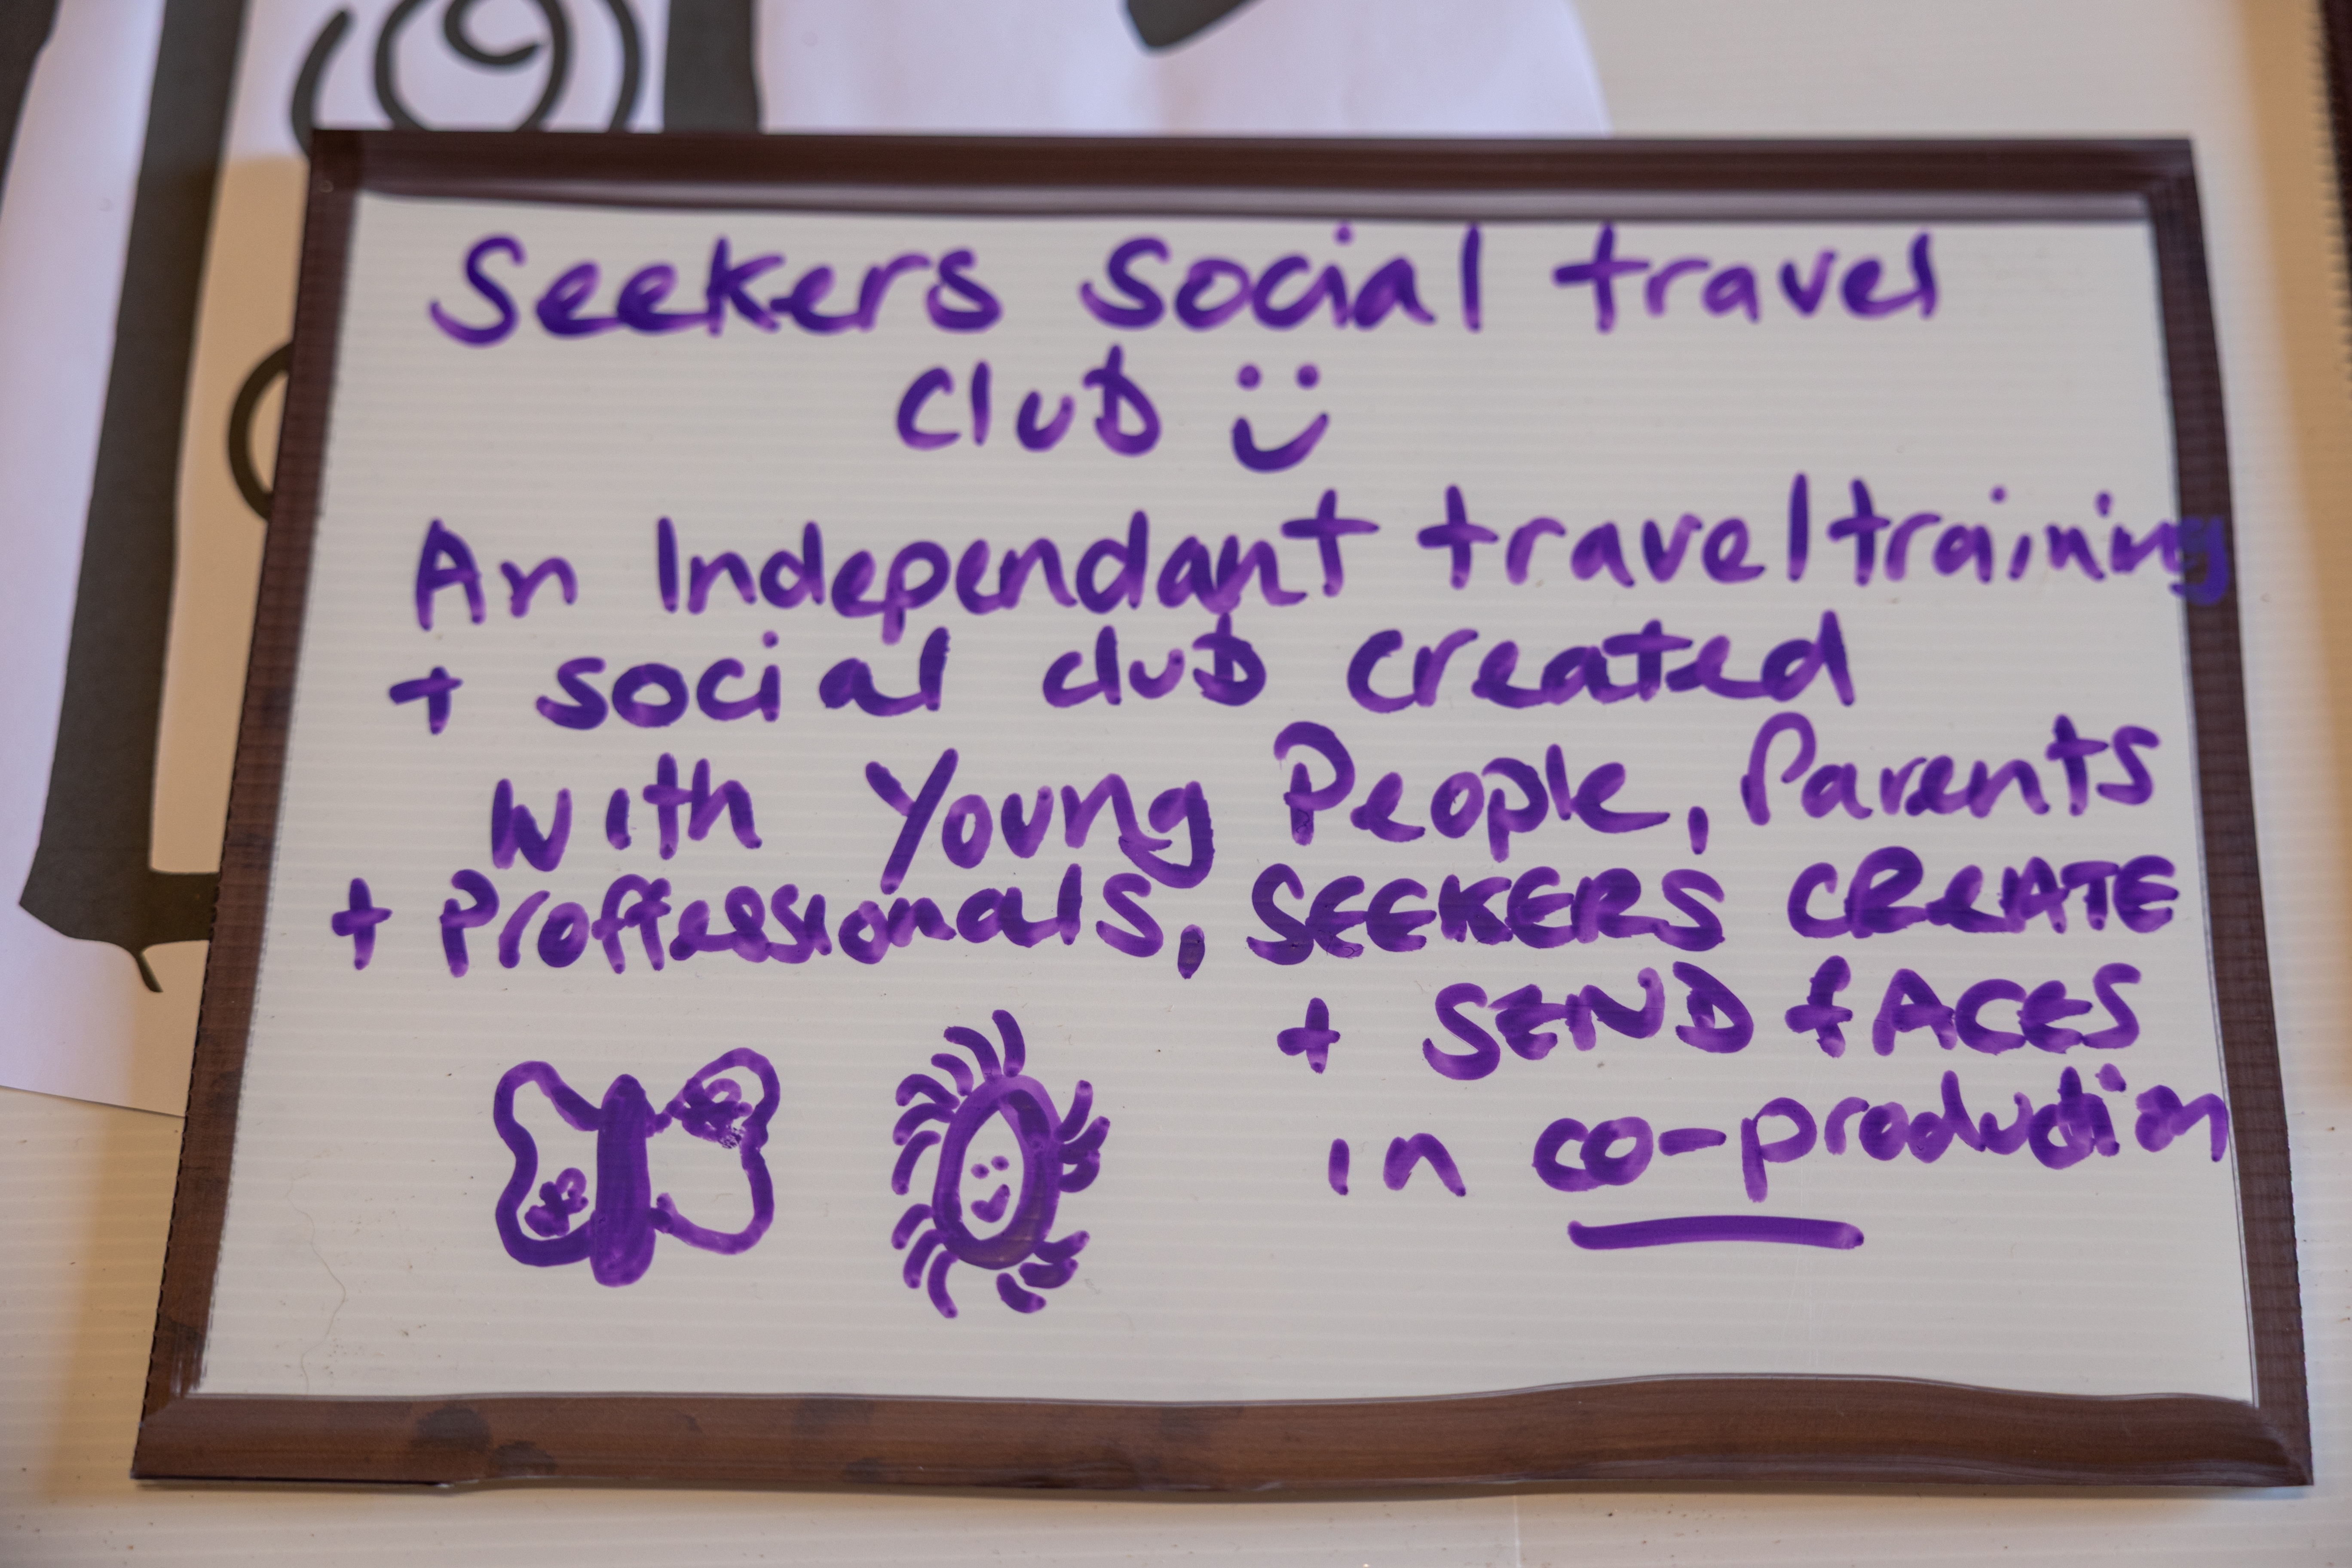 Seekers Social travel
Club
An Independant travel training
+ social club created
with Young People, Parents
+ Proffessionals, SEEKERS CREATE
+ SEND fACES
in co-production